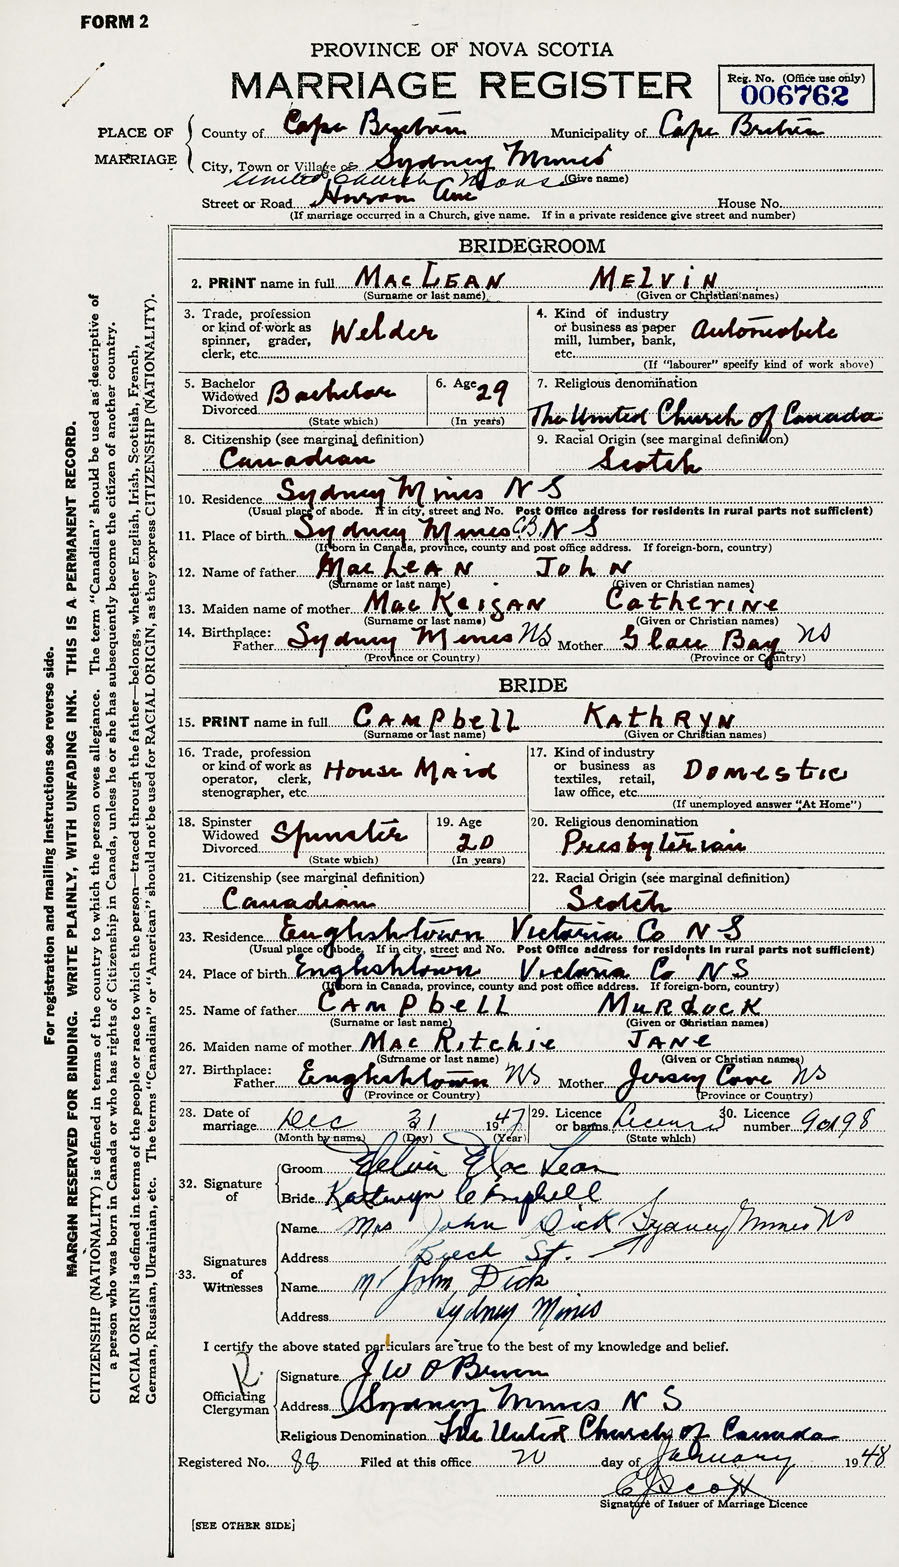 FORM 2
PROVINCE OF NOVA SCOTIA
MARRIAGE REGISTER
Reg. No. (Office use only)
006762
PLACE OF MARRIAGE
County of Cape Breton Municipality of Cape Breton
City, Town or Village of Sydney Mines
(Give name)
United Church Manse
Street or Road Huron Ave House No.
(If marriage occurred in a Church, give name. If in a private residence give street and number)
BRIDEGROOM
2. PRINT name in full MacLEAN MELVIN
(Surname or last name) (Given or Christian names)
3. Trade, profession or kind of work as spinner, grader, clerk, etc. Welder
4. Kind of industry or business as paper mill, lumber, bank, etc. Automobile
(If "labourer" specify kind of work above)
5. Bachelor Widowed Divorced Bachelor
(State which)
6. Age 29
(In years)
7. Religious denomination
The United Church of Canada
8. Citizenship (see marginal definition)
Canadian
9. Racial Origin (see marginal definition)
Scotch
10. Residence Sydney Mines N S
(Usual place of abode. If in city, street and No. Post Office address for residents in rural parts not sufficient)
11. Place of birth Sydney Mines C.B. N S
(If born in Canada, province, county and post office address. If foreign-born, country)
12. Name of father MacLEAN JohN
(Surname or last name) (Given or Christian names)
13. Maiden name of mother MacKeigAN CatheriNe
(Surname or last name) (Given or Christian names)
14. Birthplace:
Father Sydney Mines NS Mother Glace Bay NS
(Province or Country) (Province or Country)
BRIDE
15. PRINT name in full CAMPbell KathRyN
(Surname or last name) (Given or Christian names)
16. Trade, profession or kind of work as operator, clerk, stenographer, etc. House Maid
17. Kind of industry or business as textiles, retail, law office, etc. Domestic
(If unemployed answer "At Home")
18. Spinster Widowed Divorced Spinster
(State which)
19. Age 20
(In years)
20. Religious denomination
Presbyterian
21. Citizenship (see marginal definition)
Canadian
22. Racial Origin (see marginal definition)
Scotch
23. Residence Englishtown Victoria Co N S
(Usual place of abode. If in city, street and No. Post Office address for residents in rural parts not sufficient)
24. Place of birth Englishtown Victoria Co NS
(If born in Canada, province, county and post office address. If foreign-born, country)
25. Name of father CAMPbell MURdock
(Surname or last name) (Given or Christian names)
26. Maiden name of mother MacRitchie JANe
(Surname or last name) (Given or Christian names)
27. Birthplace:
Father Englishtown NS Mother Jersey Cove NS
(Province or Country) (Province or Country)
28. Date of marriage Dec 31 1947
(Month by name) (Day) (Year)
29. Licence or banns Licence
(State which)
30. Licence number 90198
32. Signature of
Groom Melvin MacLean
Bride Kathryn Campbell
33. Signatures of Witnesses
Name Mrs John Dick Sydney Mines NS
Address Beech St.
Name Mr John Dick
Address Sydney Mines
I certify the above stated particulars are true to the best of my knowledge and belief.
Officiating Clergyman
Signature J W O'Brien
Address Sydney Mines N S
Religious Denomination The United Church of Canada
Registered No. 88 Filed at this office 20 day of January 1948
C J Scott
Signature of Issuer of Marriage Licence
[SEE OTHER SIDE]
For registration and mailing instructions see reverse side.
MARGIN RESERVED FOR BINDING. WRITE PLAINLY, WITH UNFADING INK. THIS IS A PERMANENT RECORD.
CITIZENSHIP (NATIONALITY) is defined in terms of the country to which the person owes allegiance. The term "Canadian" should be used as descriptive of
a person who was born in Canada or who has rights of Citizenship in Canada, unless he or she has subsequently become the citizen of another country.
RACIAL ORIGIN is defined in terms of the people or race to which the person—traced through the father—belongs, whether English, Irish, Scottish, French,
German, Russian, Ukrainian, etc. The terms "Canadian" or "American" should not be used for RACIAL ORIGIN, as they express CITIZENSHIP (NATIONALITY).